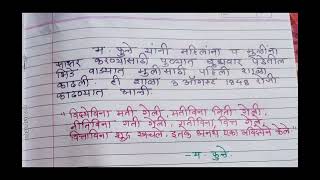 म. फुले यांनी महिलांना व मुलींना
साक्षर करण्यासाठी पुण्यात बुधवार पेठेतील
भिडे वाड्यात मुलींसाठी पहिली शाळा
काढली ही शाळा 3 ऑगस्ट 1848 रोजी
काढण्यात आली.
"विद्येविना मती गेली, मतीविना निती गेली,
नीतिविना गती गेली, गतीविना वित्त गेले,
वित्ताविना शूद्र खचले, इतके अनर्थ एका अविद्येने केले"
- म. फुले.